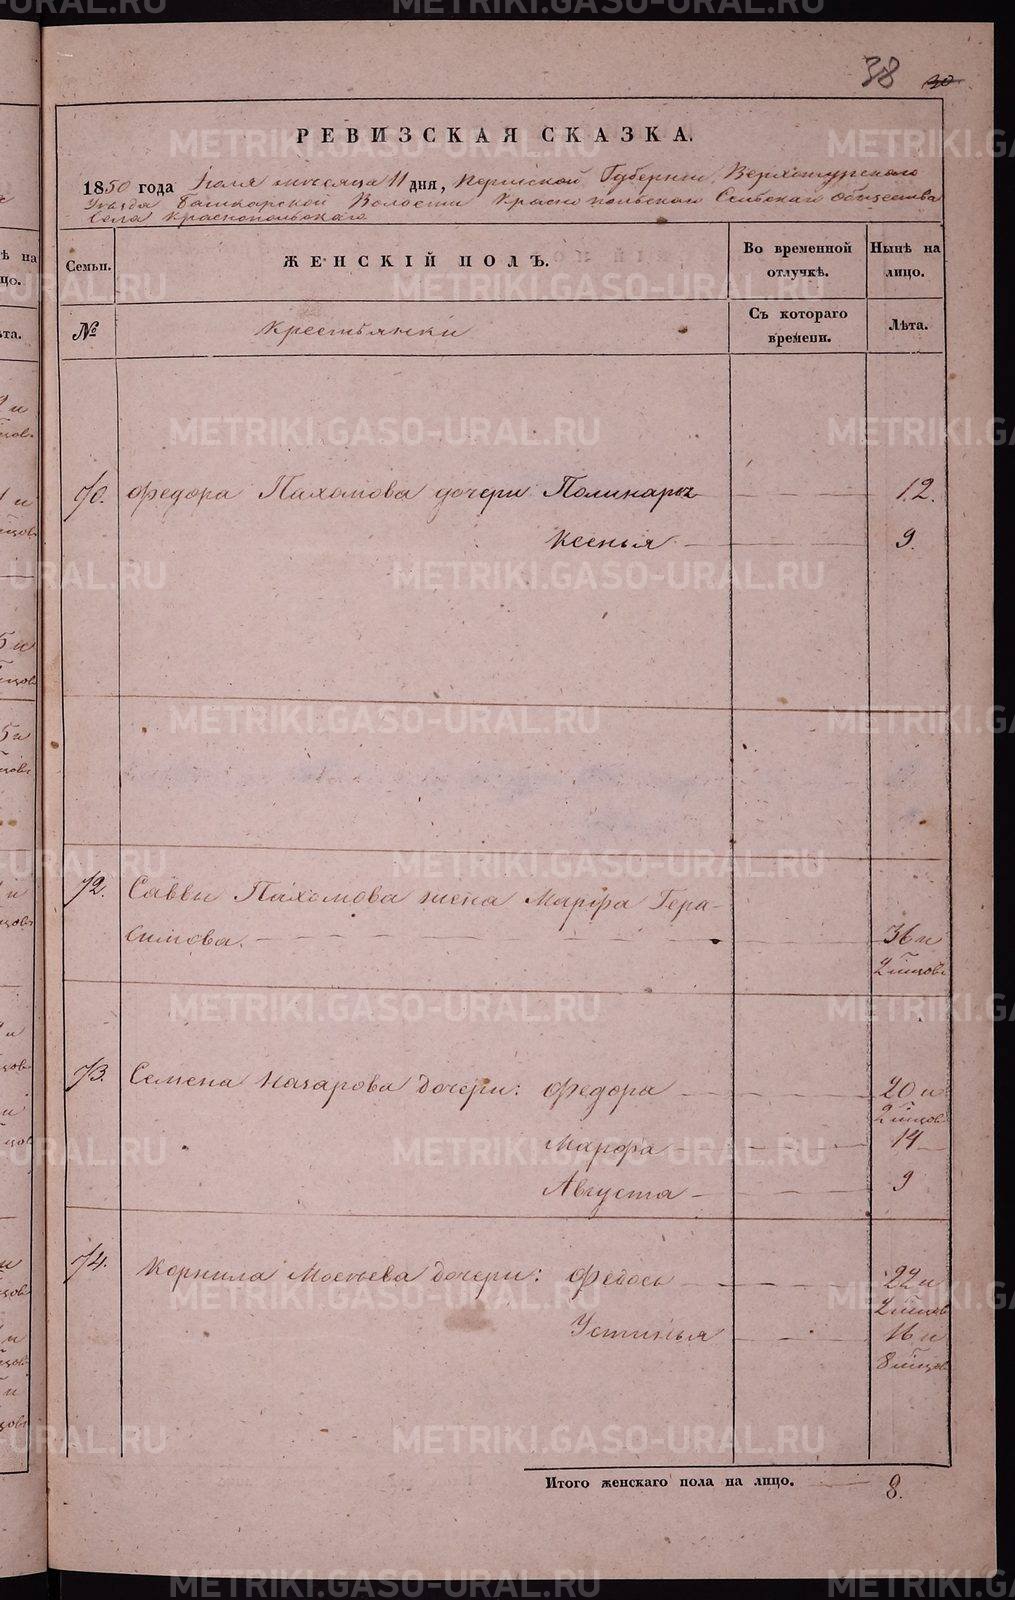 38 30
РЕВИЗСКАЯ СКАЗКА.
1850 года Іюля месяца 11 дня, Пермской Губерніи Верхотурскаго
Уезда Башкарской Волости Краснопольскаго Сельскаго Общества
Села Краснопольскаго
Семьи. ЖЕНСКІЙ ПОЛЪ. Во временной отлучкѣ. Нынѣ на лицо.
№ Крестьянки Съ котораго времени. Лѣта.
70. Федора Пахомова дочери Полинарья 12.
Ксенья 9.
72. Саввы Пахомова жена Марфа Гера-
симова. 36 и
2 мцов
73. Семена Назарова дочери: Федора 20 и
2 мцов
Марфа 14
Августа 9
74. Корнила Моегоева дочери: Федось 22 и
2 мцов
Устинья 16 и
8 мцов
Итого женскаго пола на лицо. 8.
METRIKI.GASO-URAL.RU